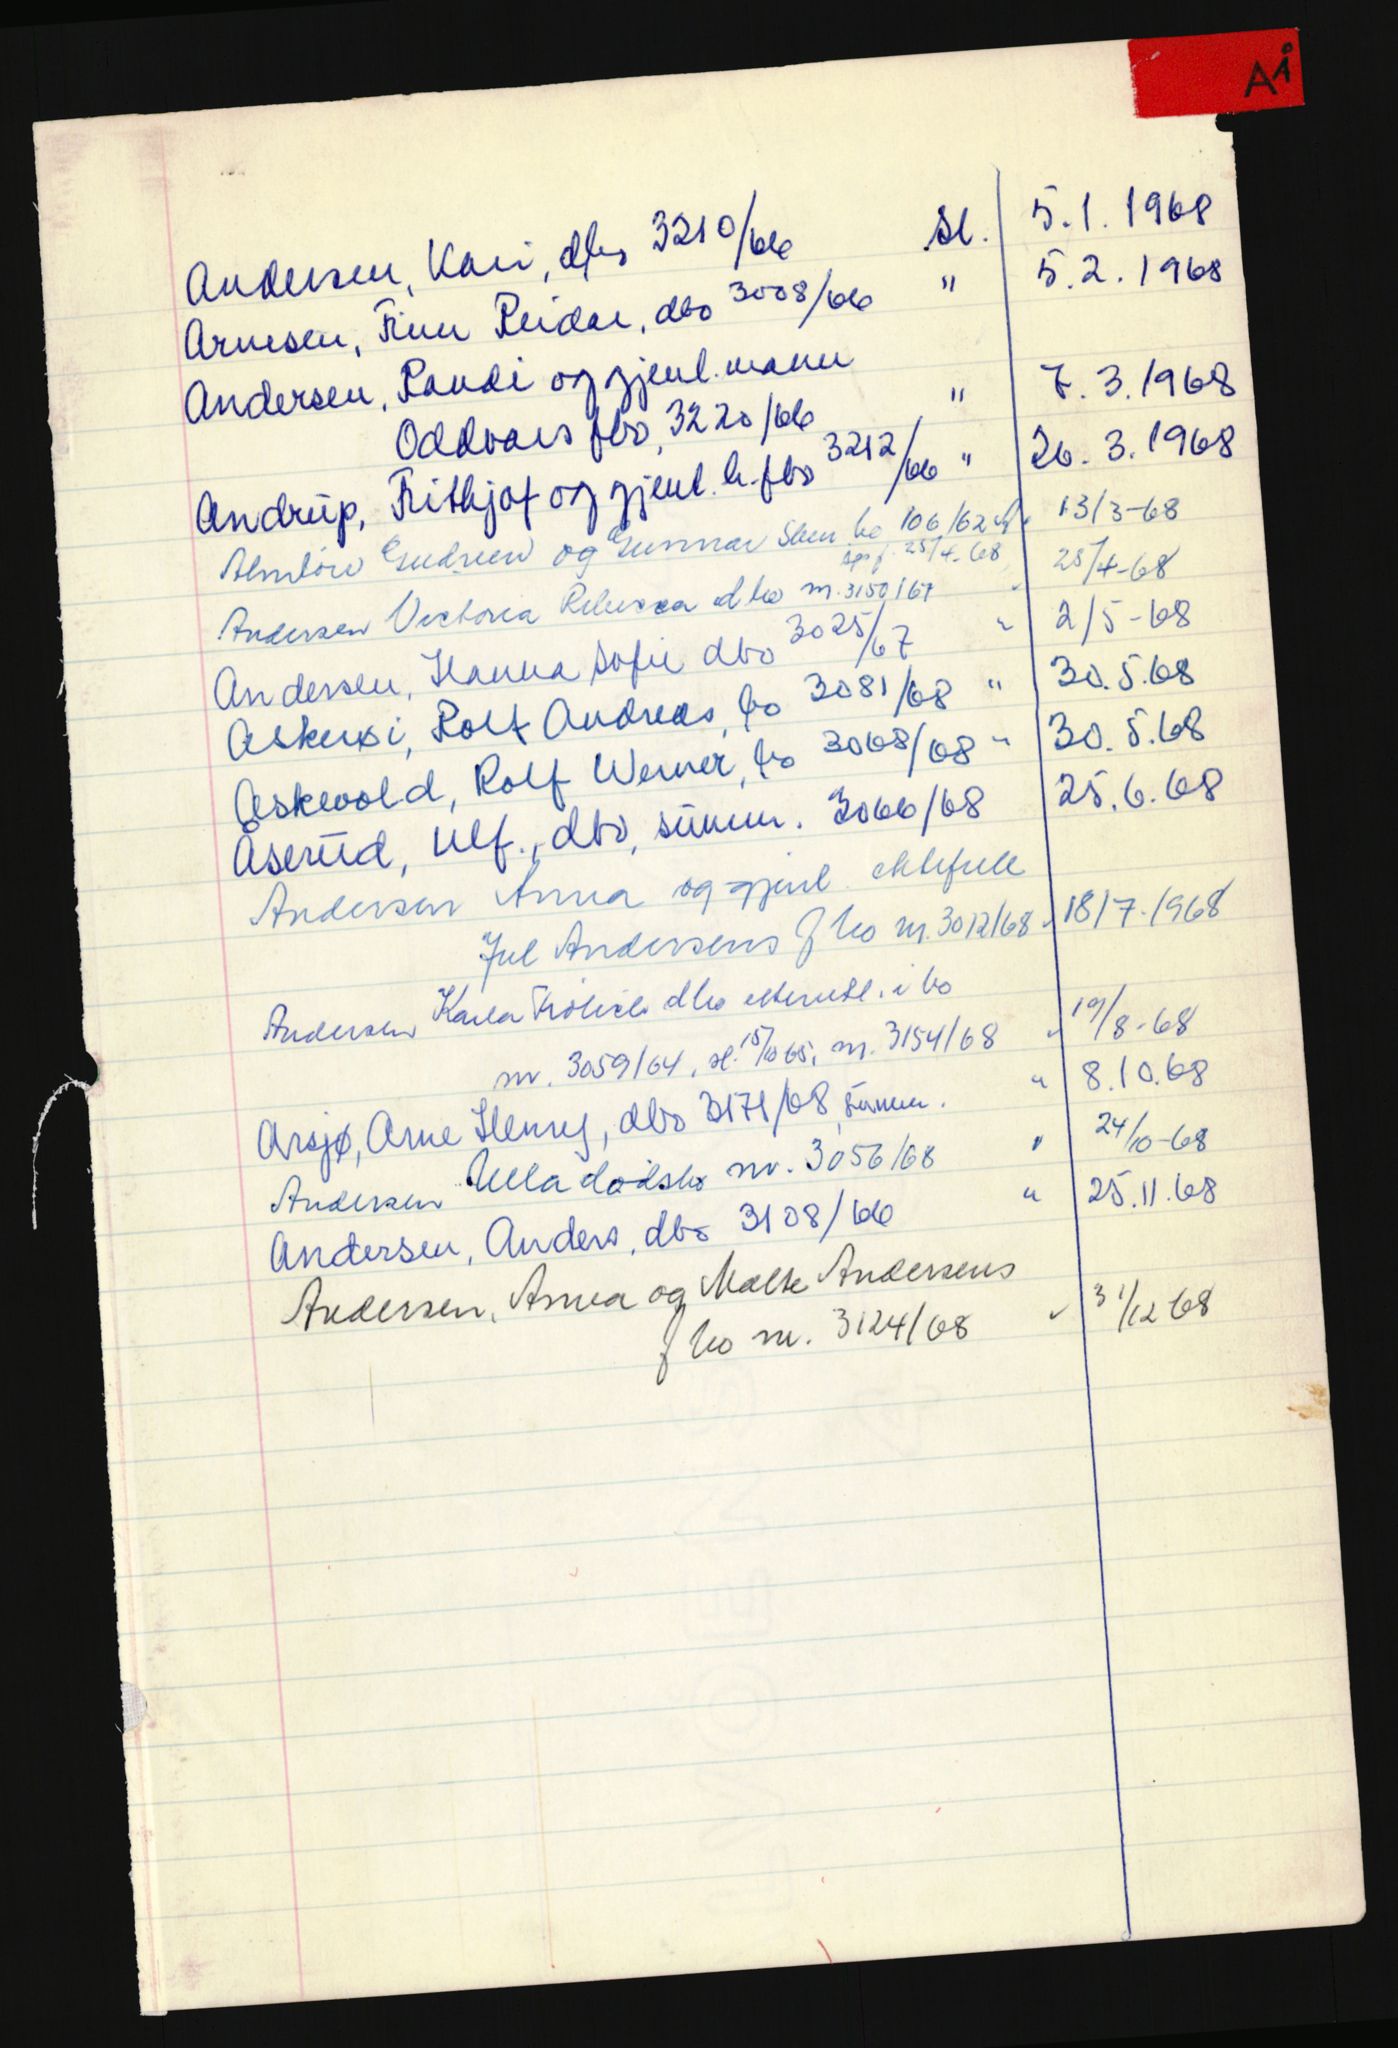 AÅ
Andersen, Kari, dbo 3210/66 Sl. 5.1.1968
Arnesen, Finn Reidar, dbo 3008/66 " 5.2.1968
Andersen, Randi og gjenl. mann
Oddvars fbo, 3220/66 " 7.3.1968
Andrup, Frithjof og gjenl. h. fbo 3212/66 " 26.3.1968
Gudrun og Gunnar bo 106/62 " 13/3-68
25/4-68
Andersen Victoria Rebecca dbo nr. 3150/67 " 25/4-68
Andersen, Hanna Sofie dbo 3025/67 " 2/5-68
Rolf Andreas, bo 3081/68 " 30.5.68
Askevold, Rolf Werner, bo 3068/68 " 30.5.68
Åserud, Ulf., dbo, summ. 3066/68 25.6.68
Andersen Anna og gjenl. ektefelle
Jul Andersens fbo nr. 3012/68 " 18/7-1968
Andersen Karla dbo etterutl. i bo
nr. 3059/64, sl. 15/10 65, nr. 3154/68 " 19/8-68
Arsjø, Arne Henry, dbo 3171/68, summ. " 8.10.68
Andersen Ulla dødsbo nr. 3056/68 " 24/10-68
Andersen, Anders, dbo 3108/66 " 25.11.68
Andersen, Anna og Malte Andersens
fbo nr. 3124/68 " 31/12 68